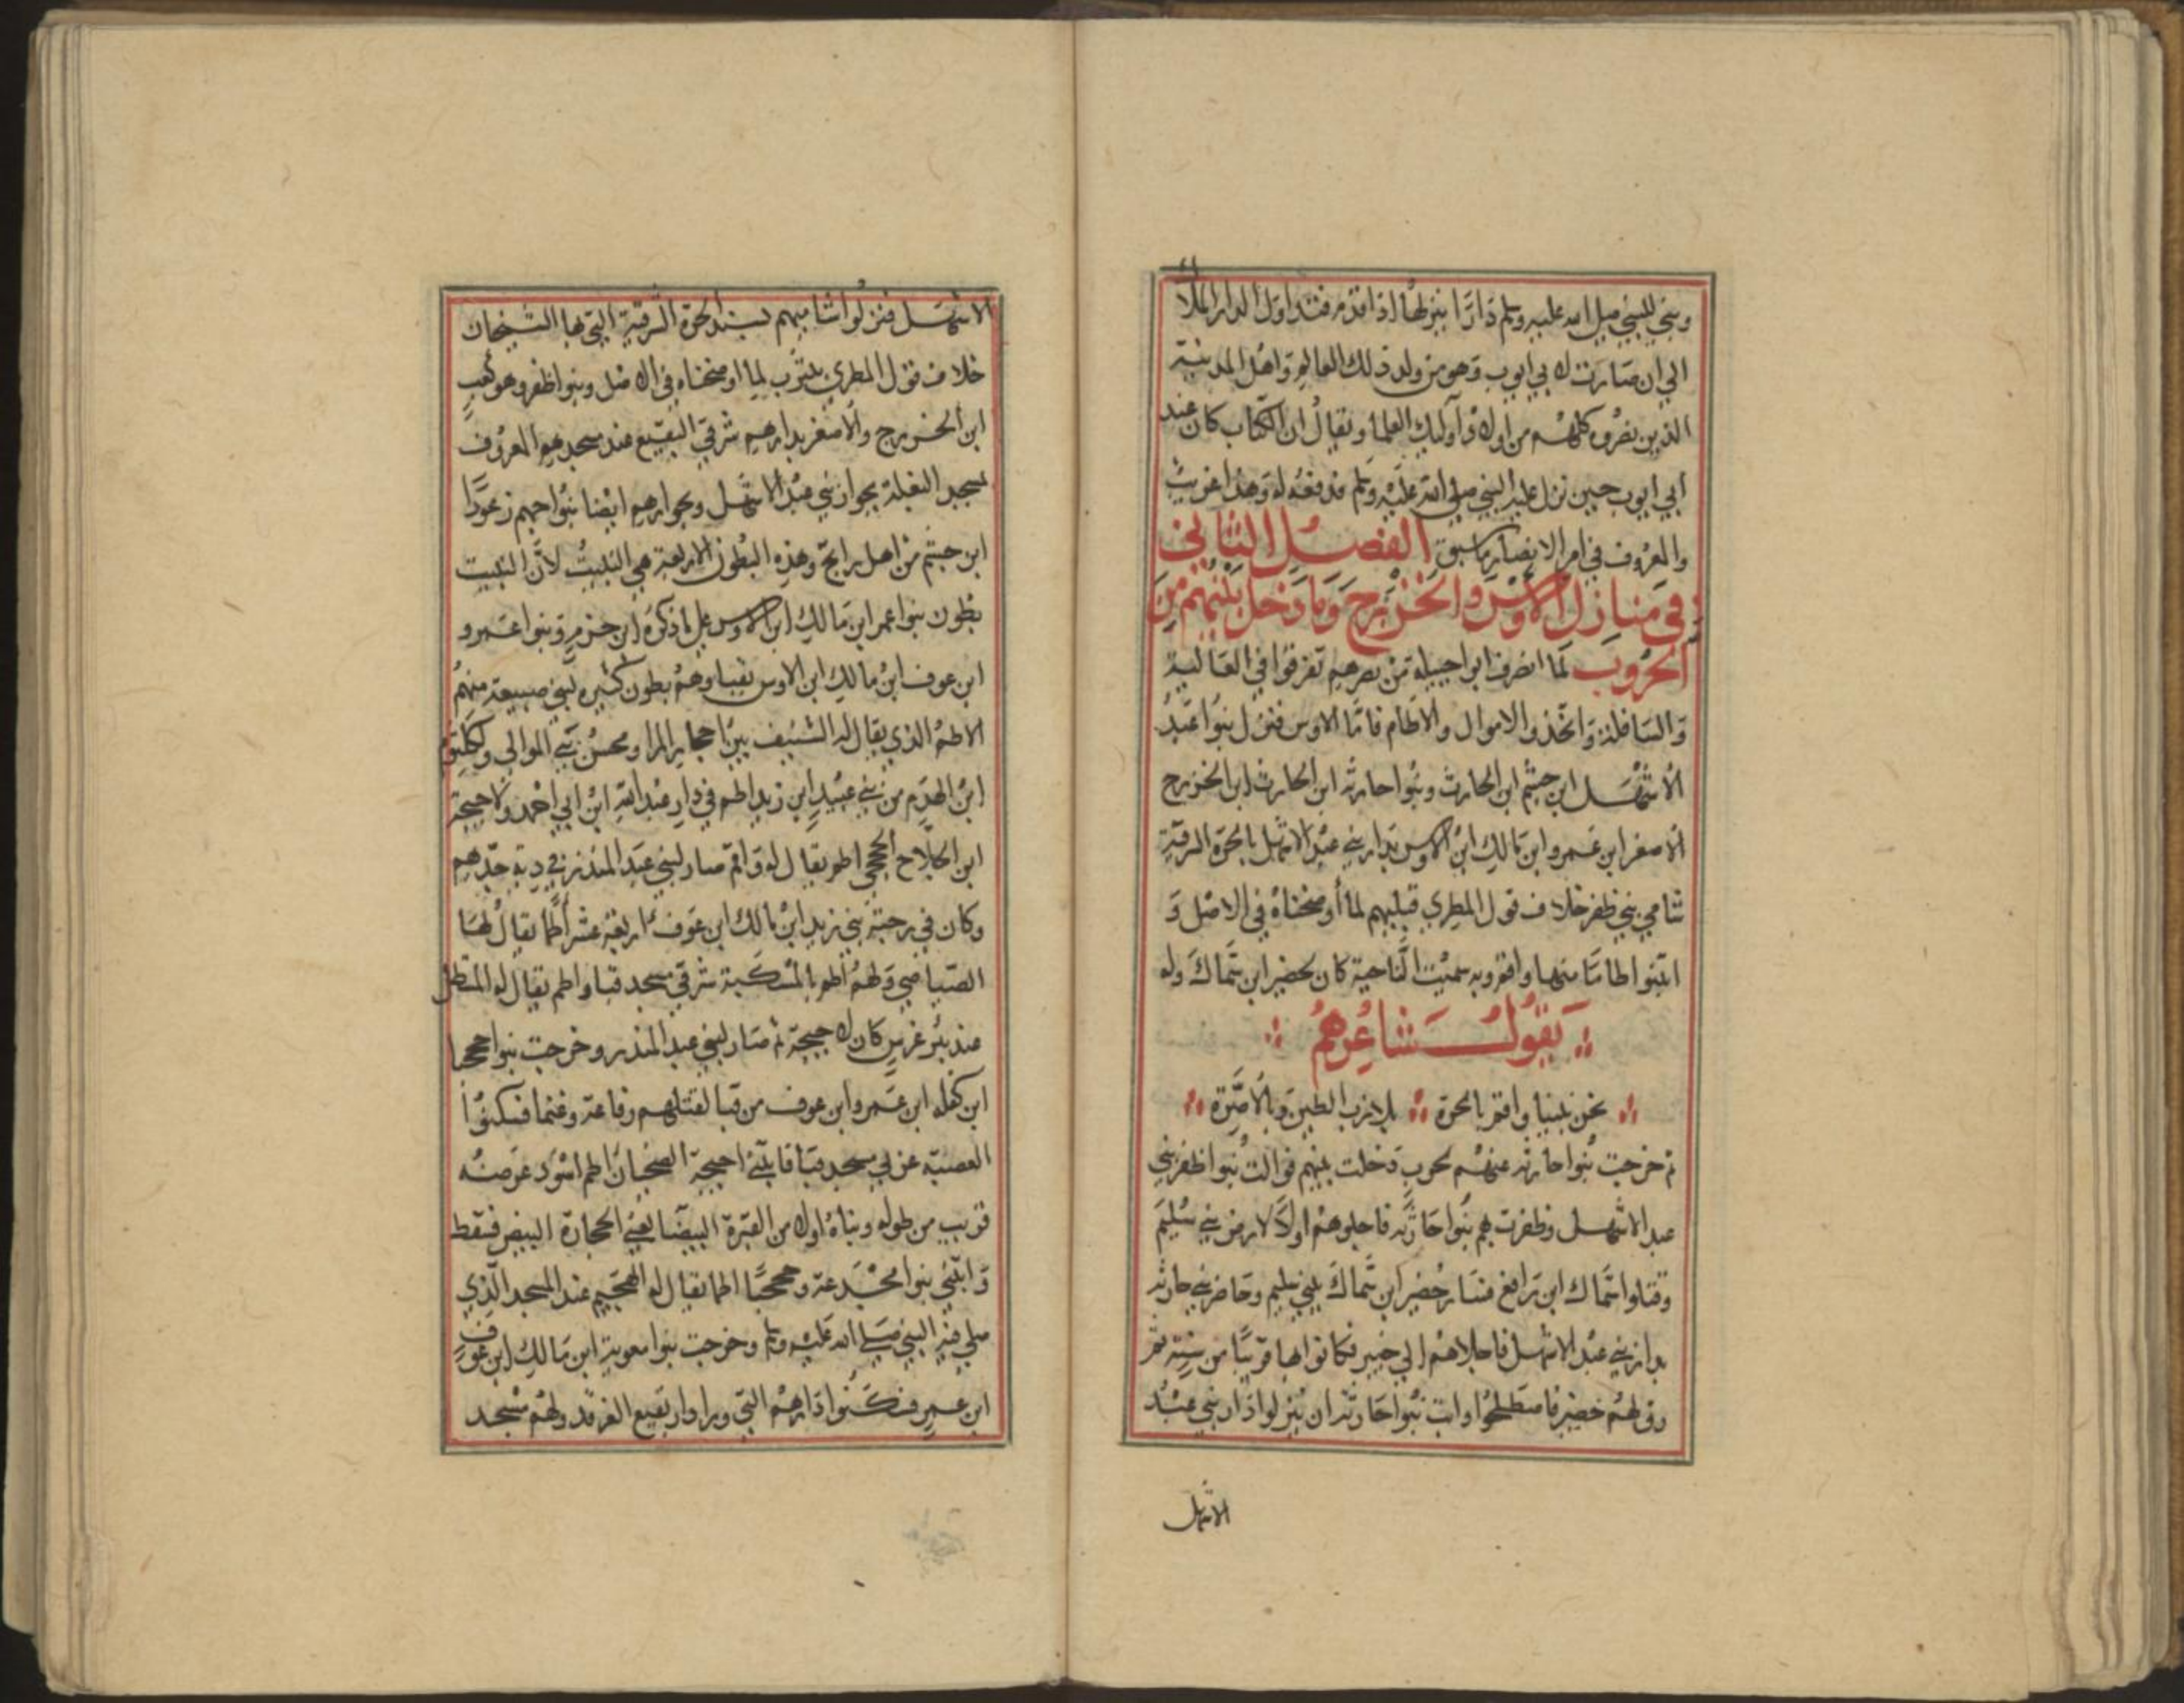 وبني للنبي صلى الله عليه وسلم دارا ينزلها اذا قدم فتداول الدار الملاك
الي ان صارت لابي ايوب وهو من ولد ذلك العالم واهل المدينة
الذين نصروه كلهم من اولاد اوليك العلما ويقال ان الكتاب كان عند
ابي ايوب حين نزل عليه النبي صلى الله عليه وسلم فدفعه له وهذا غريب
والمعروف في امر الانصار ما سبق الفصل الثاني
في منازل الاوس والخزرج وما دخل بينهم من
الحروب لما انصرف ابوا جبيلة من نصرهم تفرقوا في العالية
والسافلة واتخذوا الاموال والاطام فاما الاوس فنزل بنوا عبد
الاشهل ابن جشم ابن الحارث وبنوا حارثه ابن الحارث ابن الخزرج
الاصغر ابن عمرو ابن مالك ابن الاوس بدار بني عبد الاشهل بالحرة الشرقية
شامي بني ظفر خلاف قول المطري قبليهم لما أوضحناه في الاصل و
ابتنوا اطاما منها واقم وبه سميت الناحية كان لحضير ابن سماك وله
يقول شاعرهم
نحن بنينا واقم بالحرة بلازب الطين وبالاصرة
ثم خرجت بنوا حارثه عنهم لحرب دخلت بينهم فوالت بنوا ظفر بني
عبد الاشهل وظفرت بهم بنوا حارثه فاجلوهم اولا لارض بني سليم
وقتلوا سماك ابن رافع فسار حضير ابن سماك ببني سليم وحاصر بني حارثه
بدار بني عبد الاشهل فاجلاهم الي خيبر فكانوا بها قريبا من سنة ثم
رق لهم حضير فاصطلحوا وابت بنوا حارثه ان ينزلوا دار بني عبد
الاشهل
الاشهل فنزلوا شاميهم بسند الحرة الشرقية التي بها الشيخان
خلاف قول المطري بيثرب لما اوضحناه في الاصل وبنوا ظفر وهو كعب
ابن الخزرج والاصغر بدارهم شرقي البقيع عند مسجدهم المعروف
بمسجد البغلة بجوار بني عبد الاشهل وبجوارهم ايضا بنوا اخيهم زعورا
ابن جشم من اهل راتج وهذه البطون الاربعة هي النبيت لأن النبيت
بطون بنوا عمر ابن مالك ابن الاوس علي ما ذكره ابن حزم وبنوا عمرو
ابن عوف ابن مالك ابن الاوس بقبا وهم بطون كثيره لبني ضبيعة منهم
الاطم الذي يقال له الشنيف بين احجار المرا ومحسن بني الموالي ولكلثوم
ابن الهدم من بني عبيد ابن زيد اطم في دار عبد الله ابن ابي احمد ولاحيحة
ابن الجلاح الجحجبي اطم يقال له واقم صار لبني عبد المنذر في دية جدهم
وكان في رحبة بني زيد ابن مالك ابن عوف اربعة عشر أطما يقال لها
الصياصي ولهم اطم بالمسكبة شرقي مسجد قبا واطم يقال له المستظل
عند بئر غرس كان لاحيحة ثم صار لبني عبد المنذر وخرجت بنوا جحجبا
ابن كلفه ابن عمرو ابن عوف من قبا لقتلهم رفاعة وغنما فسكنوا
العصبة غربي مسجد قبا فابتني احيحة الضحيان اطم اسود عرضه
قريب من طوله وبناه اولا من القبرة البيضا يعني الحجارة البيض فسقط
وابتني بنوا مجدعة وجحجبا اطما يقال له الهجيم عند المسجد الذي
صلي فيه النبي صلى الله عليه وسلم وخرجت بنوا معوية ابن مالك ابن عوف
ابن عمرو فسكنوا دارهم التي ورا دار بقيع الغرقد ولهم مسجد